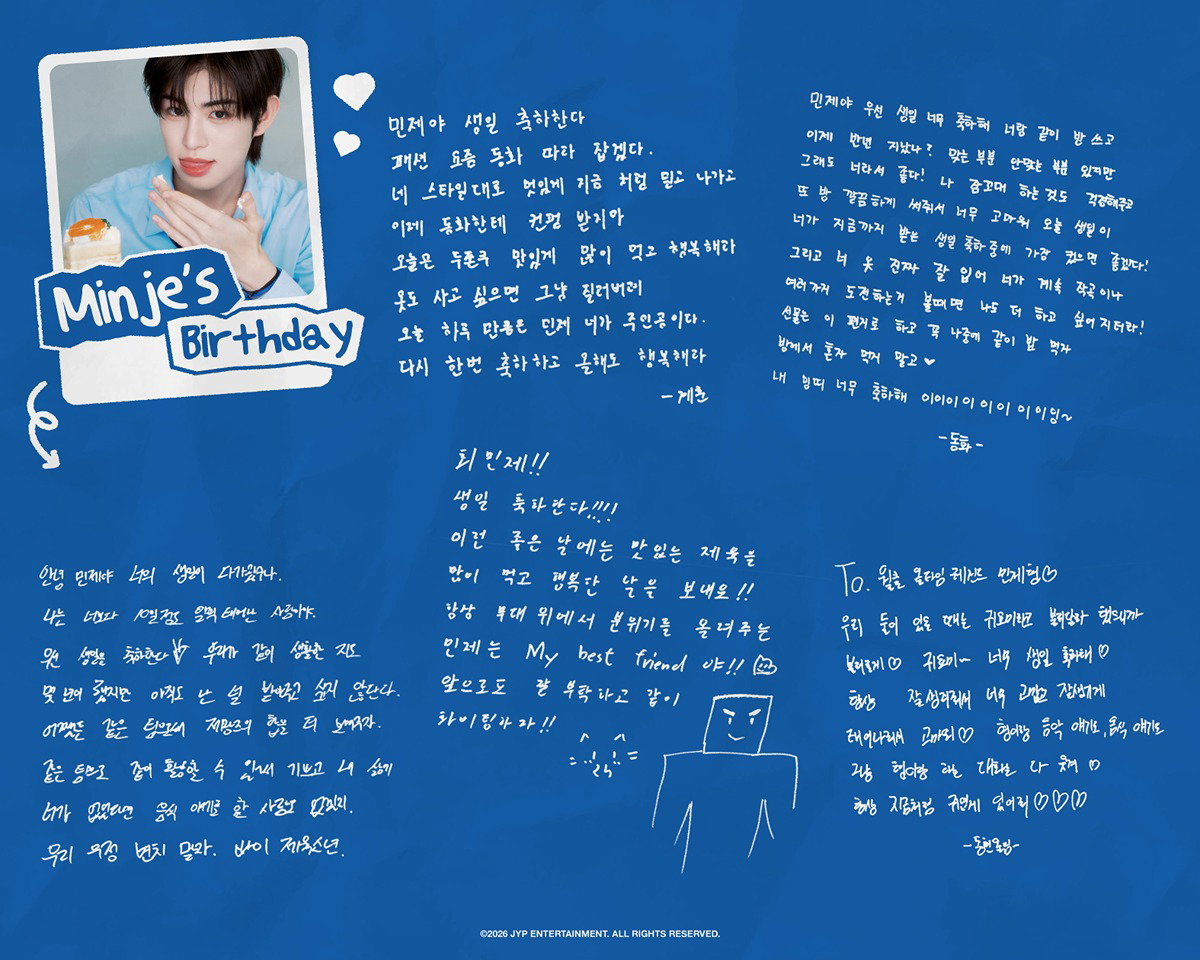 Minje's
Birthday
민제야 생일 축하한다
패션 요즘 동화 따라 잡겠다.
네 스타일대로 멋있게 지금 처럼 믿고 나가고
이제 동화한테 컨펌 받지마
오늘은 두쫀쿠 맛있게 많이 먹고 행복해라
옷도 사고 싶으면 그냥 질러버려
오늘 하루 만큼은 민제 너가 주인공이다.
다시 한번 축하하고 올해도 행복해라
민제야 우선 생일 너무 축하해 너랑 같이 방 쓰고
이제 반년 지났나? 맞는 부분 안맞는 부분 있지만
그래도 너라서 좋다! 나 잠꼬대 하는것도 걱정해주고
또 방 깔끔하게 써줘서 너무 고마워 오늘 생일이
너가 지금까지 받은 생일 축하중에 가장 컸으면 좋겠다!
그리고 너 옷 진짜 잘 입어 너가 계속 작곡이나
여러가지 도전하는거 볼때면 나도 더 하고 싶어지더라!
선물은 이 편지로 하고 꼭 나중에 같이 밥 먹자
방에서 혼자 먹지 말고 ♥
내 너무 축하해 이이이이이이이이이잉~
-동화-
안녕 민제야 너의 생일이 다가왔구나.
나는 너보다 10일 정도 일찍 태어난 사람이야.
생일을 축하한다 우리가 같이 생활한 지도
몇 년이 됐지만 아직도 난 널 싶지 않단다.
어쨌든 같은 팀으로서 힙을 더 보여주자.
같은 팀으로 같이 활동할 수 있어서 기쁘고
너가 없었다면 음식 얘기를 할 사람도 없겠지.
우리 우정 변치 말자. 제육소년.
최민제!!
생일 축하한다!!!!
이런 좋은 날에는 맛있는 제육을
많이 먹고 행복한 날을 보내도!!
항상 무대 위에서 분위기를 올려주는
민제는 My best friend 야!!
앞으로도 잘 부탁하고 같이
화이팅하자!!
To. 월클 올타임 레전드 민제형♡
우리 둘이 있을 때는 귀요미라고 불러달라 했으니까
불러줄게♡ 귀요미~ 너무 생일 축하해♡
항상 잘 챙겨줘서 너무 고맙고 잘생기게
태어나줘서 고마워♡ 형이랑 음악 얘기도, 음식 얘기도
그냥 형이랑 하는 대화는 다 웃겨 ♡
항상 지금처럼 귀엽게 있어줘 ♡♡♡
©2026 JYP ENTERTAINMENT. ALL RIGHTS RESERVED.